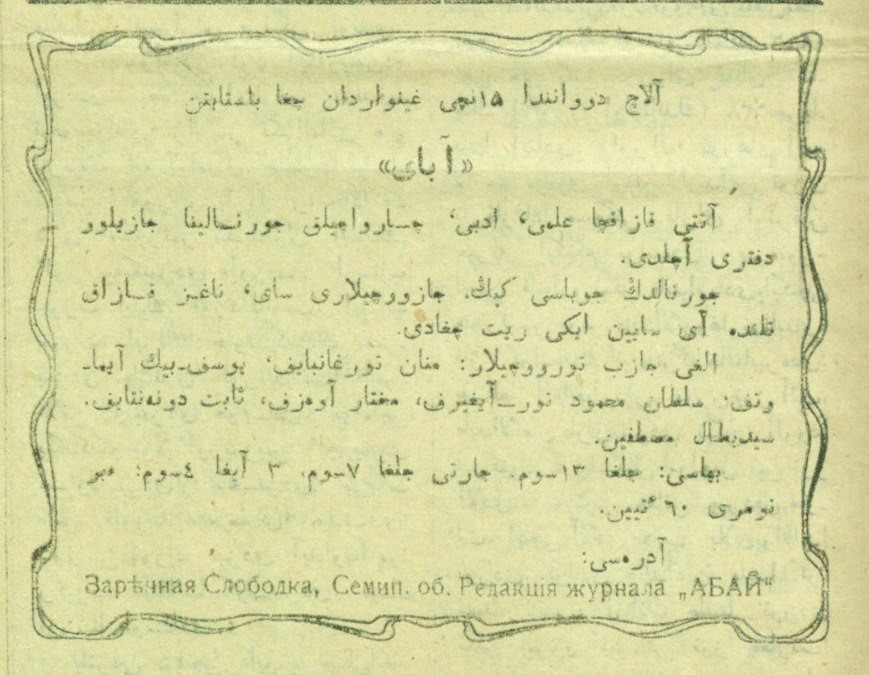 آلاچ دووانندا ١٥نچی غینواردان جغا باستابتن
«آبای»
آتتی قازاقچا علمی، ادبی، چارواچیلق جورنالیفا جازیلوو
دفتری آچلدی.
جورنالدڭ جوباسی کیڭ، جازووچیلاری سای، ناغز قازاق
تلنده آی سایین ایکی ریت چغادی.
الغی جازب توروووچیلار: منان تورغانبایف، یوسف‌بیك آیما-
وتف، سلطان محمود تور-آیغیرف، مختار آوەزف، ثابت دونەنتایف.
سیدبطال مصطفین.
بهاسی: جلغا ١٣سوم، جارتی جلغا ٧سوم، ٣ آیغا ٤سوم: مبر
نومری ٦٠تیین.
آدرەسی:
Зарѣчная Слободка, Семип. об. Редакція журнала „АБАЙ“